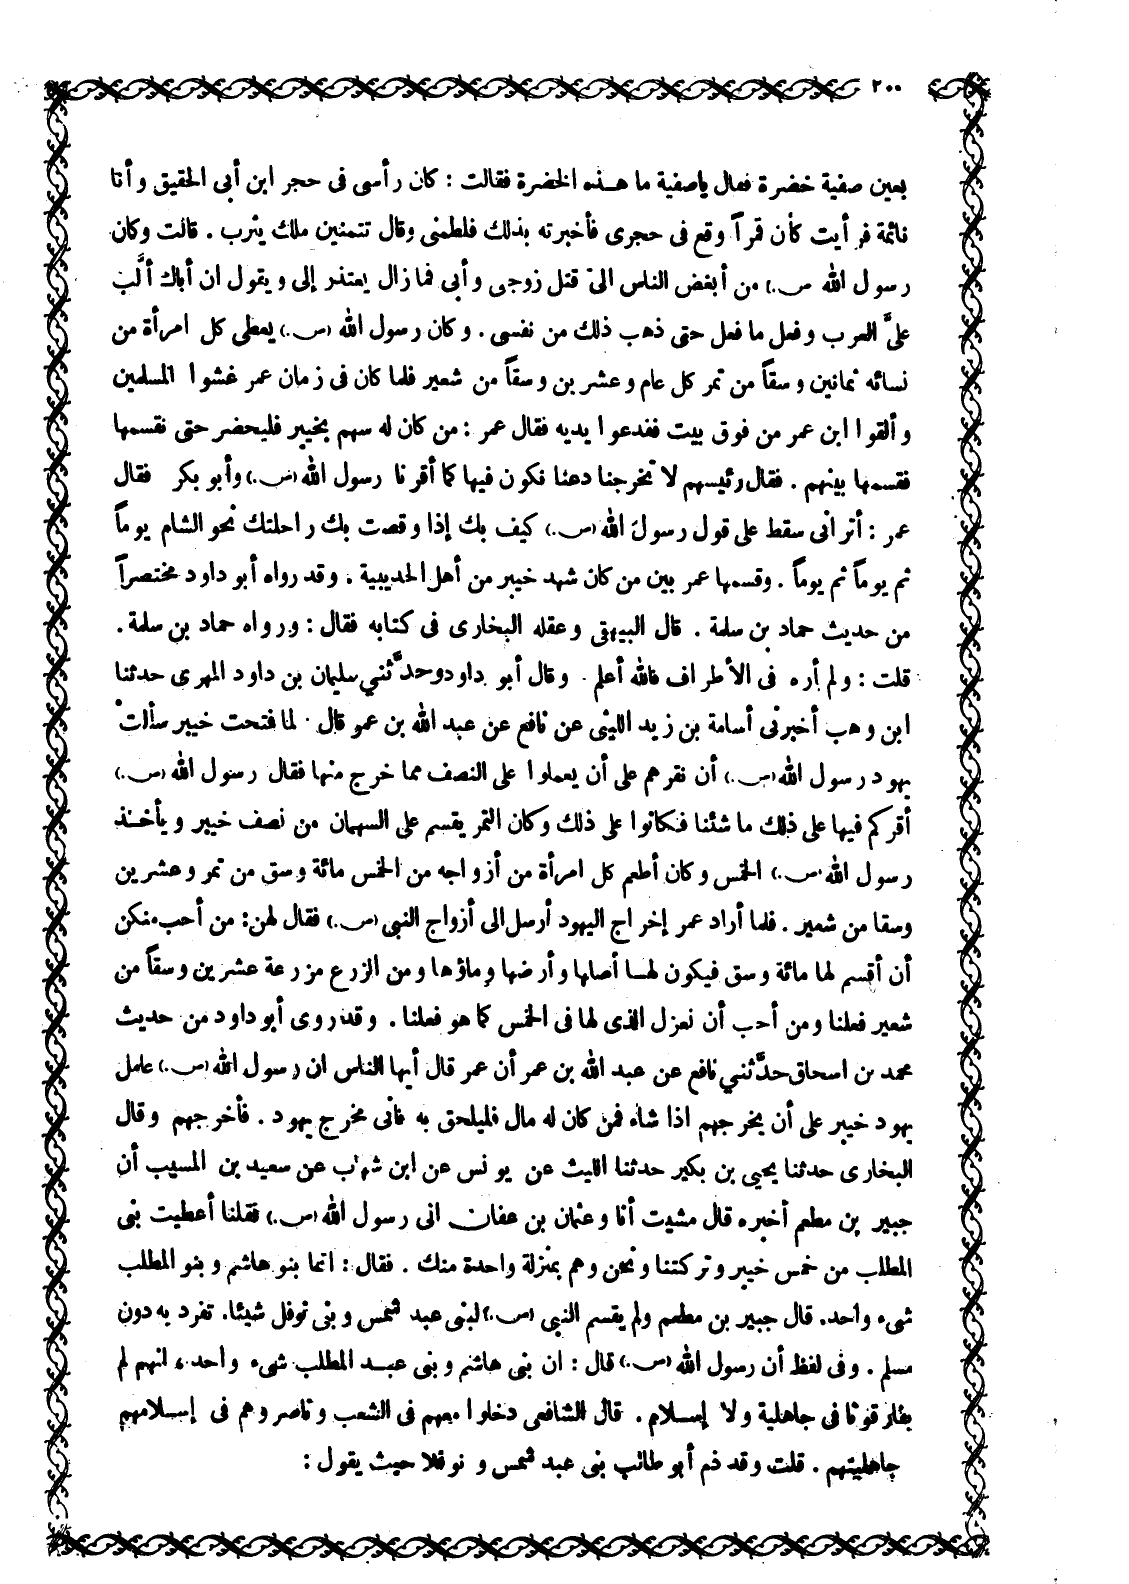 ٢٠٠
بعين صفية خضرة فقال ياصفية ما هـذه الخضرة فقالت : كان رأسى فى حجر ابن أبي الحقيق وأنا
نائمة فرأيت كأن قمراً وقع فى حجرى فأخبرته بذلك فلطمنى وقال تتمنين ملك يثرب . قالت وكان
رسول الله (ص.) من أبغض الناس الىّ قتل زوجى وأبي فما زال يعتذر إلى ويقول ان أباك ألَّب
علىَّ العرب وفعل ما فعل حتى ذهب ذلك من نفسى . وكان رسول الله (ص.) يعطى كل امرأة من
نسائه ثمانين وسقاً من تمر كل عام وعشرين وسقاً من شعير فلما كان فى زمان عمر غشوا المسلمين
وألقوا ابن عمر من فوق بيت ففدعوا يديه فقال عمر : من كان له سهم بخيبر فليحضر حتى نقسمها
فقسمها بينهم . فقال رئيسهم لا تخرجنا دعنا نكون فيها كما أقرنا رسول الله (ص.) وأبو بكر فقال
عمر : أترانى سقط على قول رسول الله (ص.) كيف بك إذا وقصت بك راحلتك نحو الشام يوماً
ثم يوماً ثم يوماً . وقسمها عمر بين من كان شهد خيبر من أهل الحديبية . وقد رواه أبو داود مختصراً
من حديث حماد بن سلمة . قال البيهقى وعلقه البخارى فى كتابه فقال : ورواه حماد بن سلمة .
قلت : ولم أره فى الأطراف فالله أعلم . وقال أبو داود وحدَّثني سليمان بن داود المهرى حدثنا
ابن وهب أخبرنى أسامة بن زيد الليثى عن نافع عن عبد الله بن عمر قال . لما فتحت خيبر سألت
يهود رسول الله (ص.) أن نقرهم على أن يعملوا على النصف مما خرج منها فقال رسول الله (ص.)
أقركم فيها على ذلك ما شئنا فكانوا على ذلك وكان التمر يقسم على السهمان من نصف خيبر ويأخـذ
رسول الله (ص.) الخمس وكان أطعم كل امرأة من أزواجه من الخمس مائة وسق من تمر وعشرين
وسقا من شعير . فلما أراد عمر إخراج اليهود أرسل الى أزواج النبى (ص.) فقال لهن: من أحب منكن
أن أقسم لها مائة وسق فيكون لهـا أصلها وأرضها وماؤها ومن الزرع مزرعة عشرين وسقاً من
شعير فعلنا ومن أحب أن نعزل الذى لها فى الخمس كما هو فعلنا . وقد روى أبو داود من حديث
محمد بن اسحاق حدَّثني نافع عن عبد الله بن عمر أن عمر قال أيها الناس ان رسول الله (ص.) عامل
يهود خيبر على أن يخرجهم اذا شاء فمن كان له مال فليلحق به فانى مخرج يهود . فأخرجهم وقال
البخارى حدثنا يحيى بن بكير حدثنا الليث عن يونس عن ابن شهاب عن سعيد بن المسيب أن
جبير بن مطعم أخبره قال مشيت أنا وعثمان بن عفان الى رسول الله (ص.) فقلنا أعطيت بنى
المطلب من خمس خيبر وتركتنا ونحن وهم بمنزلة واحدة منك . فقال : انما بنو هاشم وبنو المطلب
شىء واحد. قال جبير بن مطعم ولم يقسم النبى (ص.) لبنى عبد شمس وبنى نوفل شيئا. تفرد به دون
مسلم . وفى لفظ أن رسول الله (ص.) قال : ان بنى هاشم وبنى عبـد المطلب شىء واحد، انهم لم
يفارقونا فى جاهلية ولا إسـلام . قال الشافعى دخلوا معهم فى الشعب وناصروهم فى إسـلامهم
جاهليتهم . قلت وقد ذم أبو طالب بنى عبد شمس و نوفلا حيث يقول :